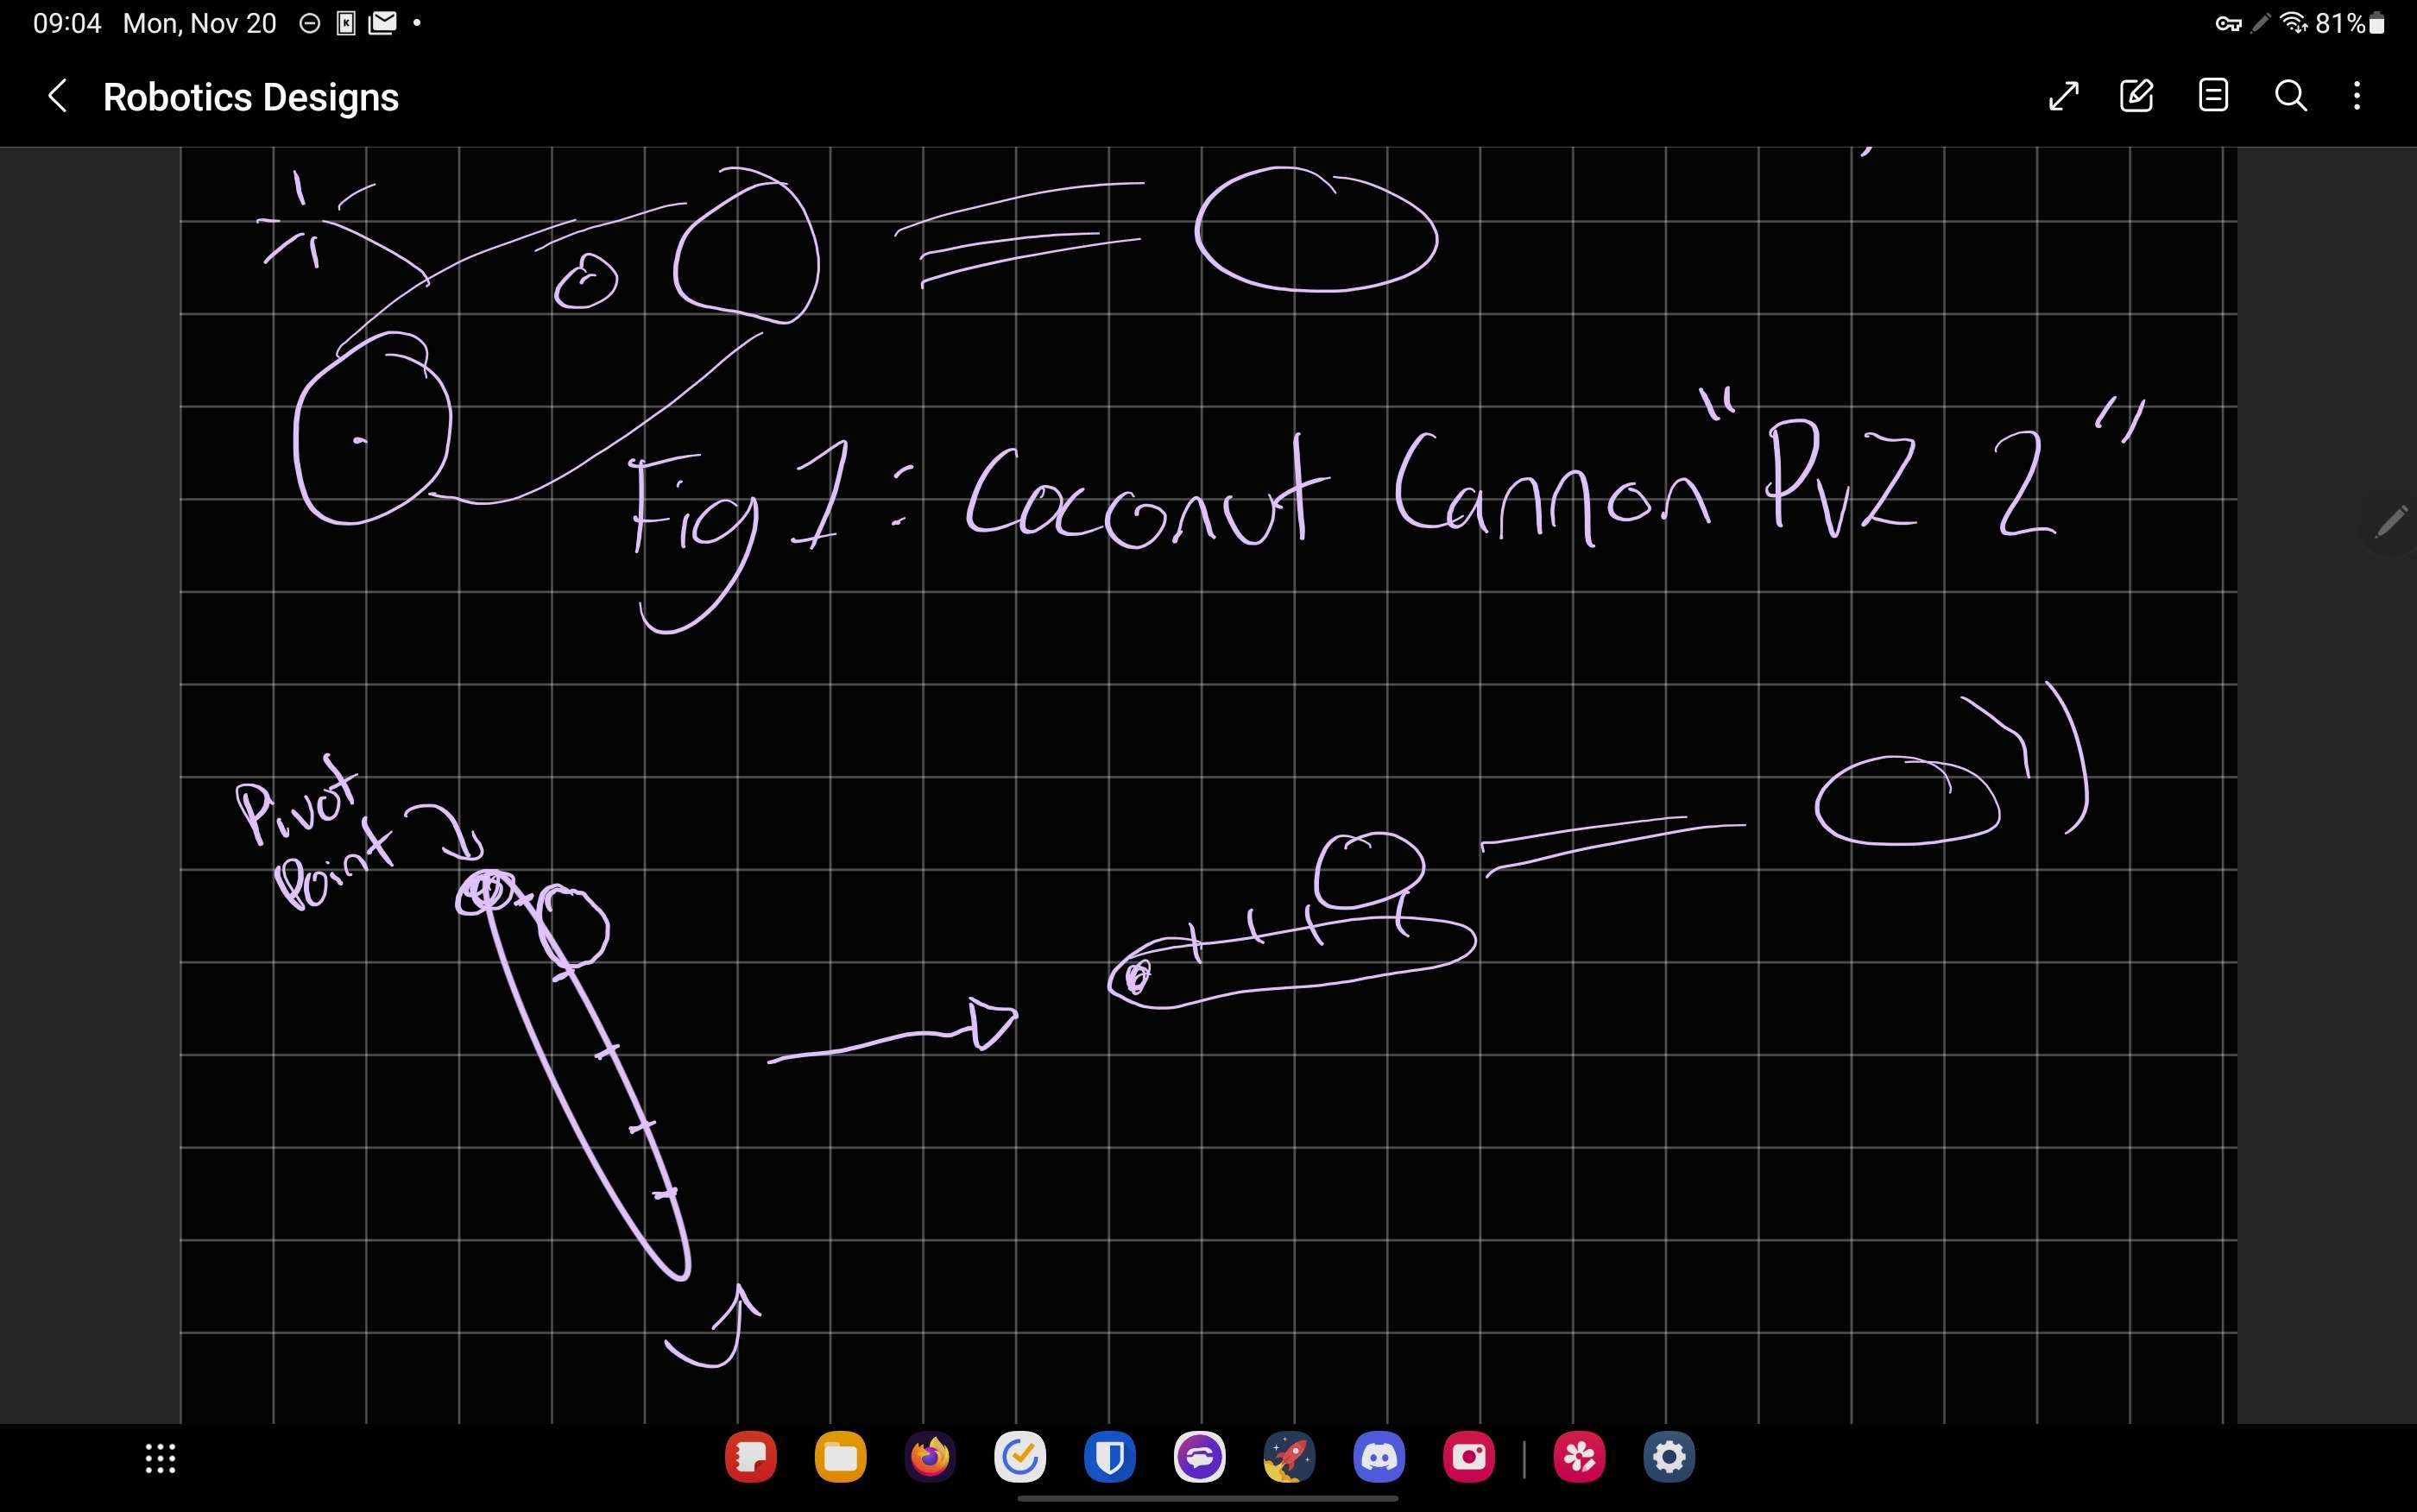 09:04 Mon, Nov 20 81%
Robotics Designs
Fig 1: Coconut Cannon "PVZ 2"
Pivot
Point